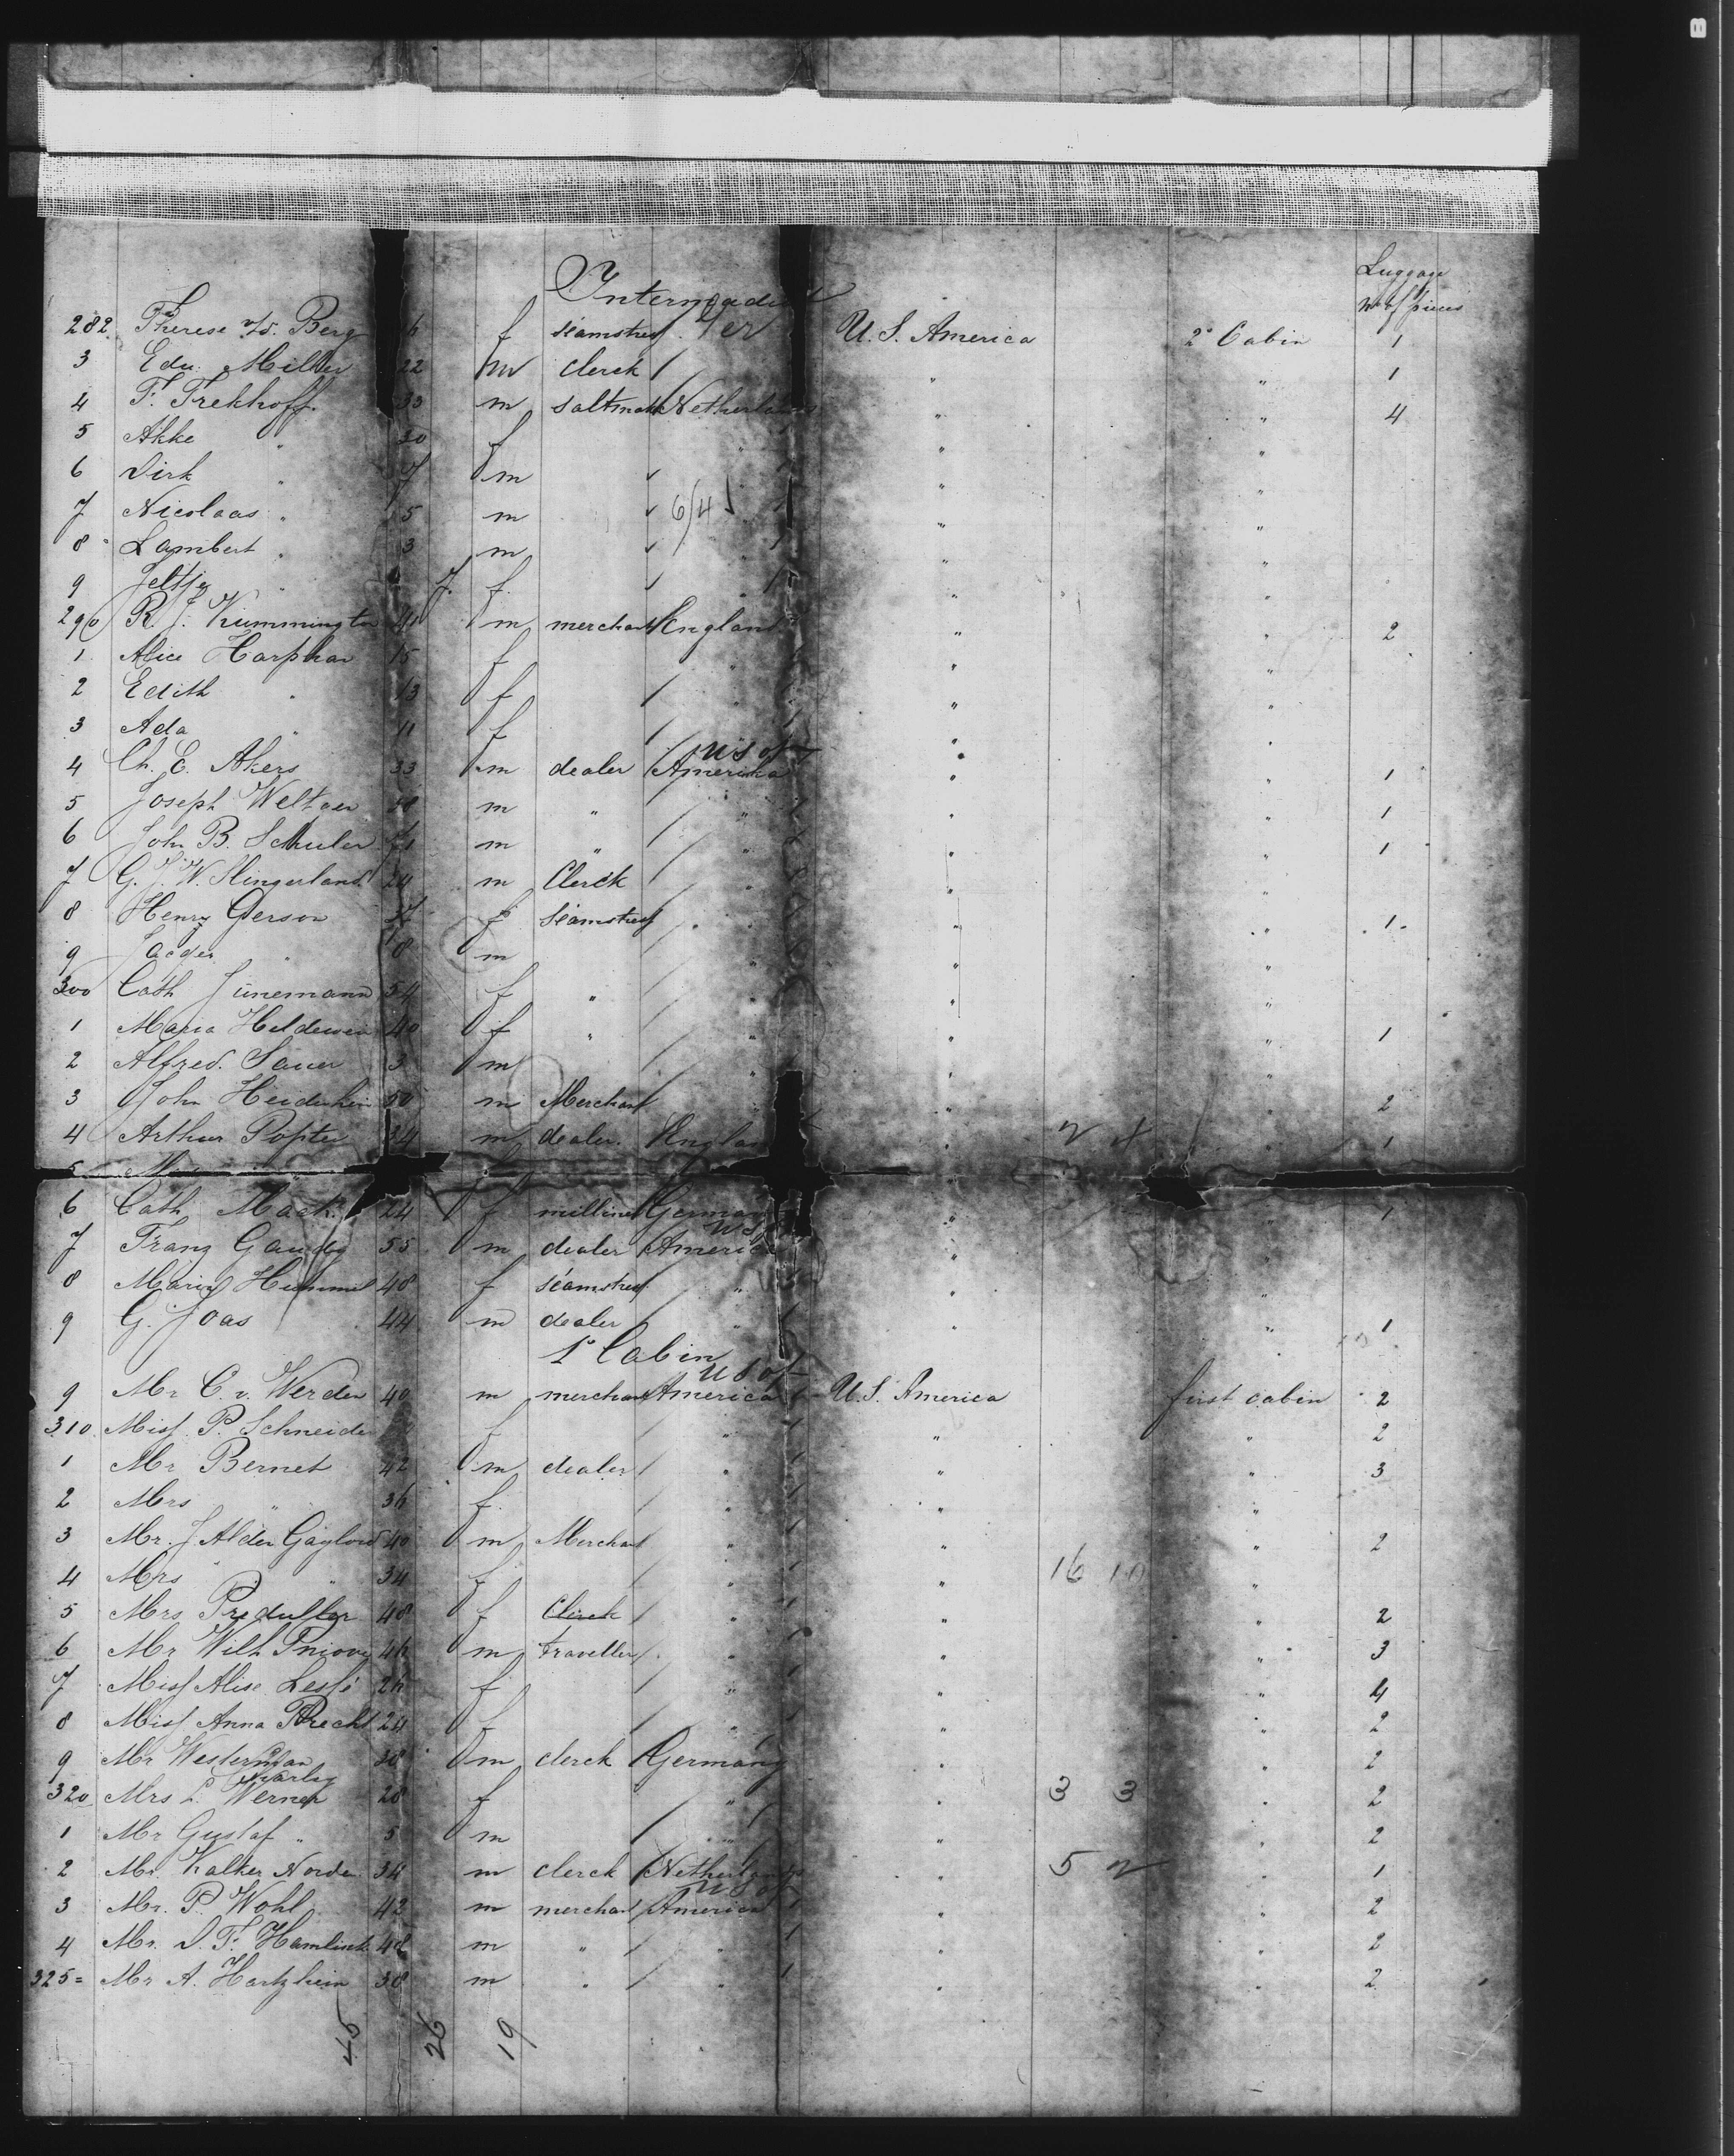 Luggage
No of pieces
282 Therese Berg 6 f seamstress Ger U. S. America 2e Cabin 1
3 Edu. Miller 22 m clerck / " " 1
4 F. Frekhoff 33 m Netherlands " " 4
5 Akke " 30 f " " "
6 Dirk " 7 m " "
7 Nicolaas " 5 m 6/4 " "
8 Lambert " 3 m " "
9 Jeltje " f " "
290 R. J. Kummington m merchant England " " 2
1 Alice Harphar 15 f " " "
2 Edith " 13 f " "
3 Ada " 11 f " "
U S of
4 Ch. E. Akers 33 m dealer America " " 1
5 Joseph Weltner m " " " " 1
6 John B. Schuler m " " " " 1
7 G. J. W. Slingerland 24 m Clerck " "
8 Henry Gerson f seamstress " " 1
9 " m " " "
300 Cath Junemann 54 f " " " "
1 Maria 40 f " " " " 1
2 Alfred. Sauer 3 m " " "
3 John m Merchant " " 2
4 Arthur Popter 34 m dealer. England " 1
5
6 Cath Maak 24 f milliner Germany " " 1
U S
7 Franz Gaudy 55 m dealer America " "
8 Maria Hummel 48 f seamstress " " "
9 G. Joas 44 m dealer " " " 1
1e Cabin
U S of
9 Mr C. v. Werden 40 m merchant America U. S. America first cabin 2
310 Miss P. Schneider f " " " 2
1 Mr Bernet 42 m dealer " " " 3
2 Mrs " 36 f " " "
3 Mr. J Alden Gaylord 40 m Merchant " " " 2
4 Mrs " " 34 f " " 16 10 "
5 Mrs 48 f Clerck " " " 2
6 Mr Wilh 46 m traveller " " " 3
7 Miss Alise Leslé 26 f " " " 4
8 Miss Anna Brecht 24 f " " " 2
9 Mr Westerman 38 m clerck Germany " " 2
320 Mrs L. Werner 28 f " " 3 3 " 2
1 Mr Gustaf " 5 m " " " 2
2 Mr. Kalker Norden 34 m clerck Netherlands " 5 2 " 1
U S of
3 Mr. P. Wohl 42 m merchant America " " 2
4 Mr. D. F. Hamlink m " " " " 2
325= Mr A. Hartzhein 38 m " " " " 2
45 26 19